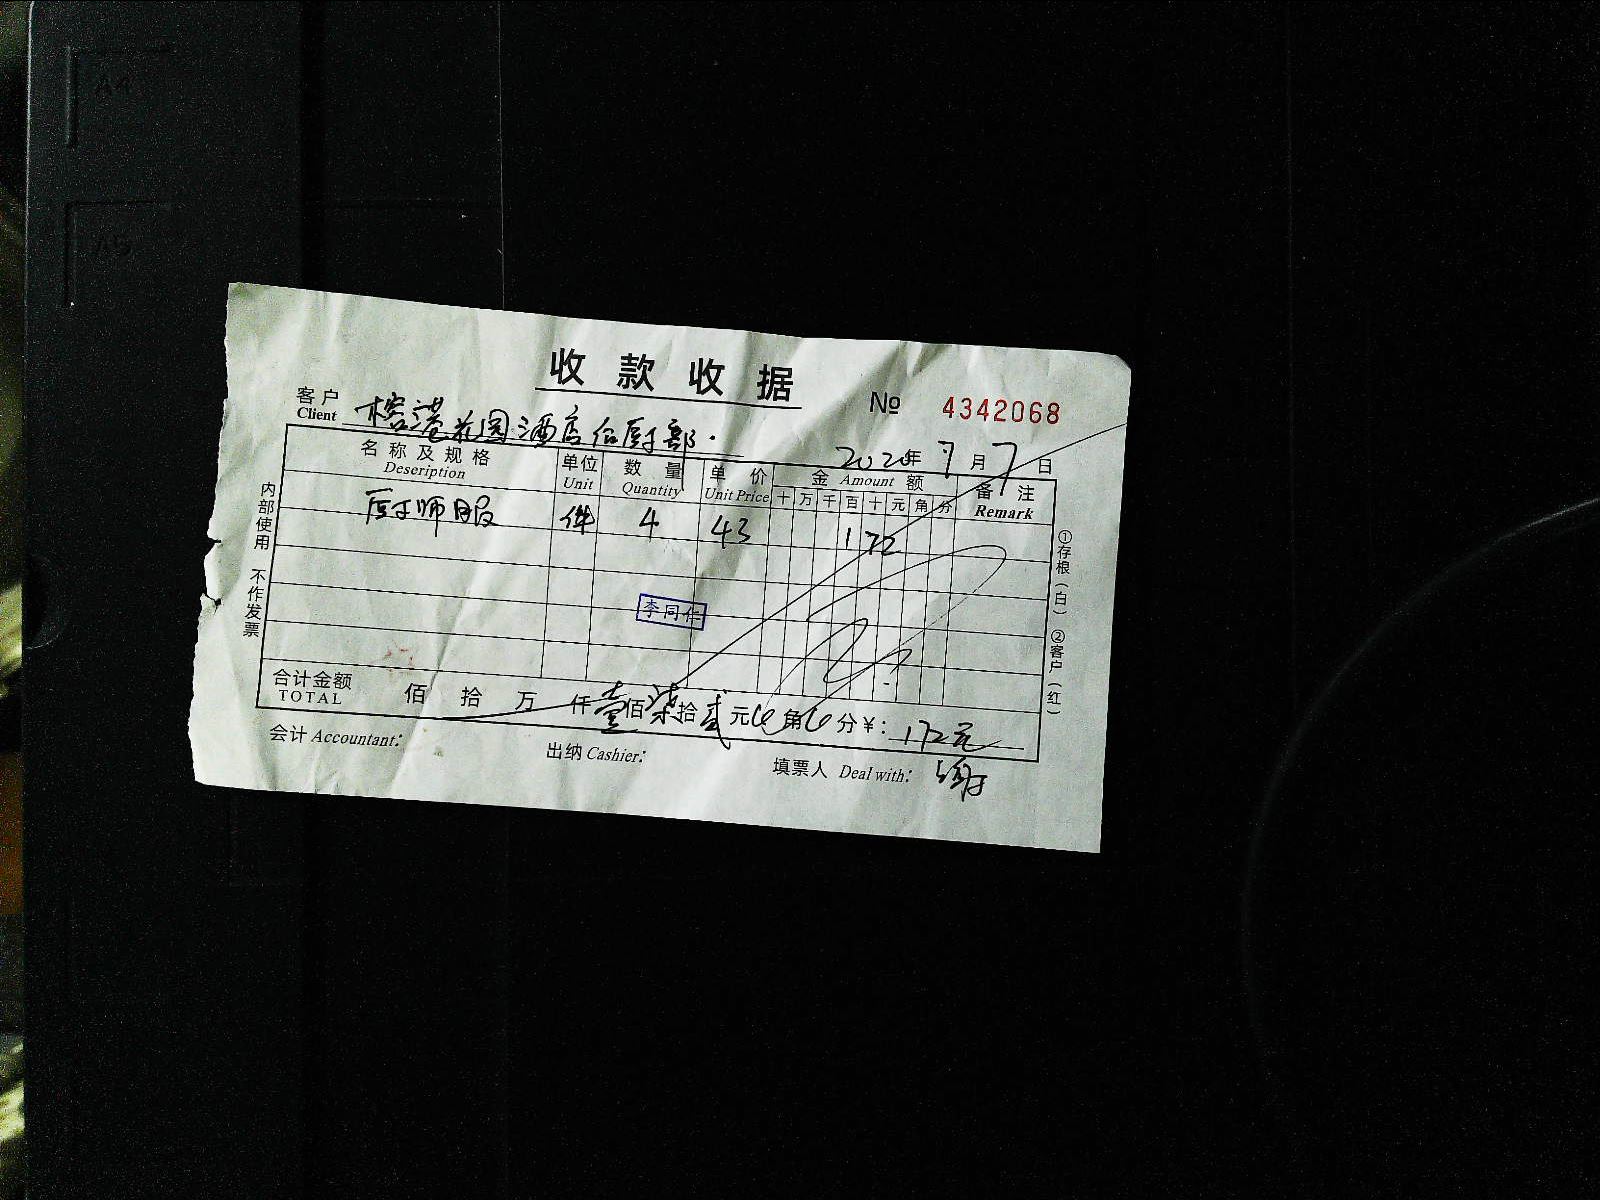 A4
A5
收款收据
№ 4342068
客户 榕港花园酒店 厨部.
Client
2020年7月7日
名称及规格 单位 数量 单价 金 Amount 额 备注
Description Unit Quantity Unit Price 十万千百十元角分 Remark
厨师服 件 4 43 172
李同仁
合计金额 佰拾万仟壹佰柒拾贰元0角0分¥:172元
TOTAL
会计 Accountant: 出纳 Cashier: 填票人 Deal with: 谢
内部使用 不作发票
①存根(白) ②客户(红)